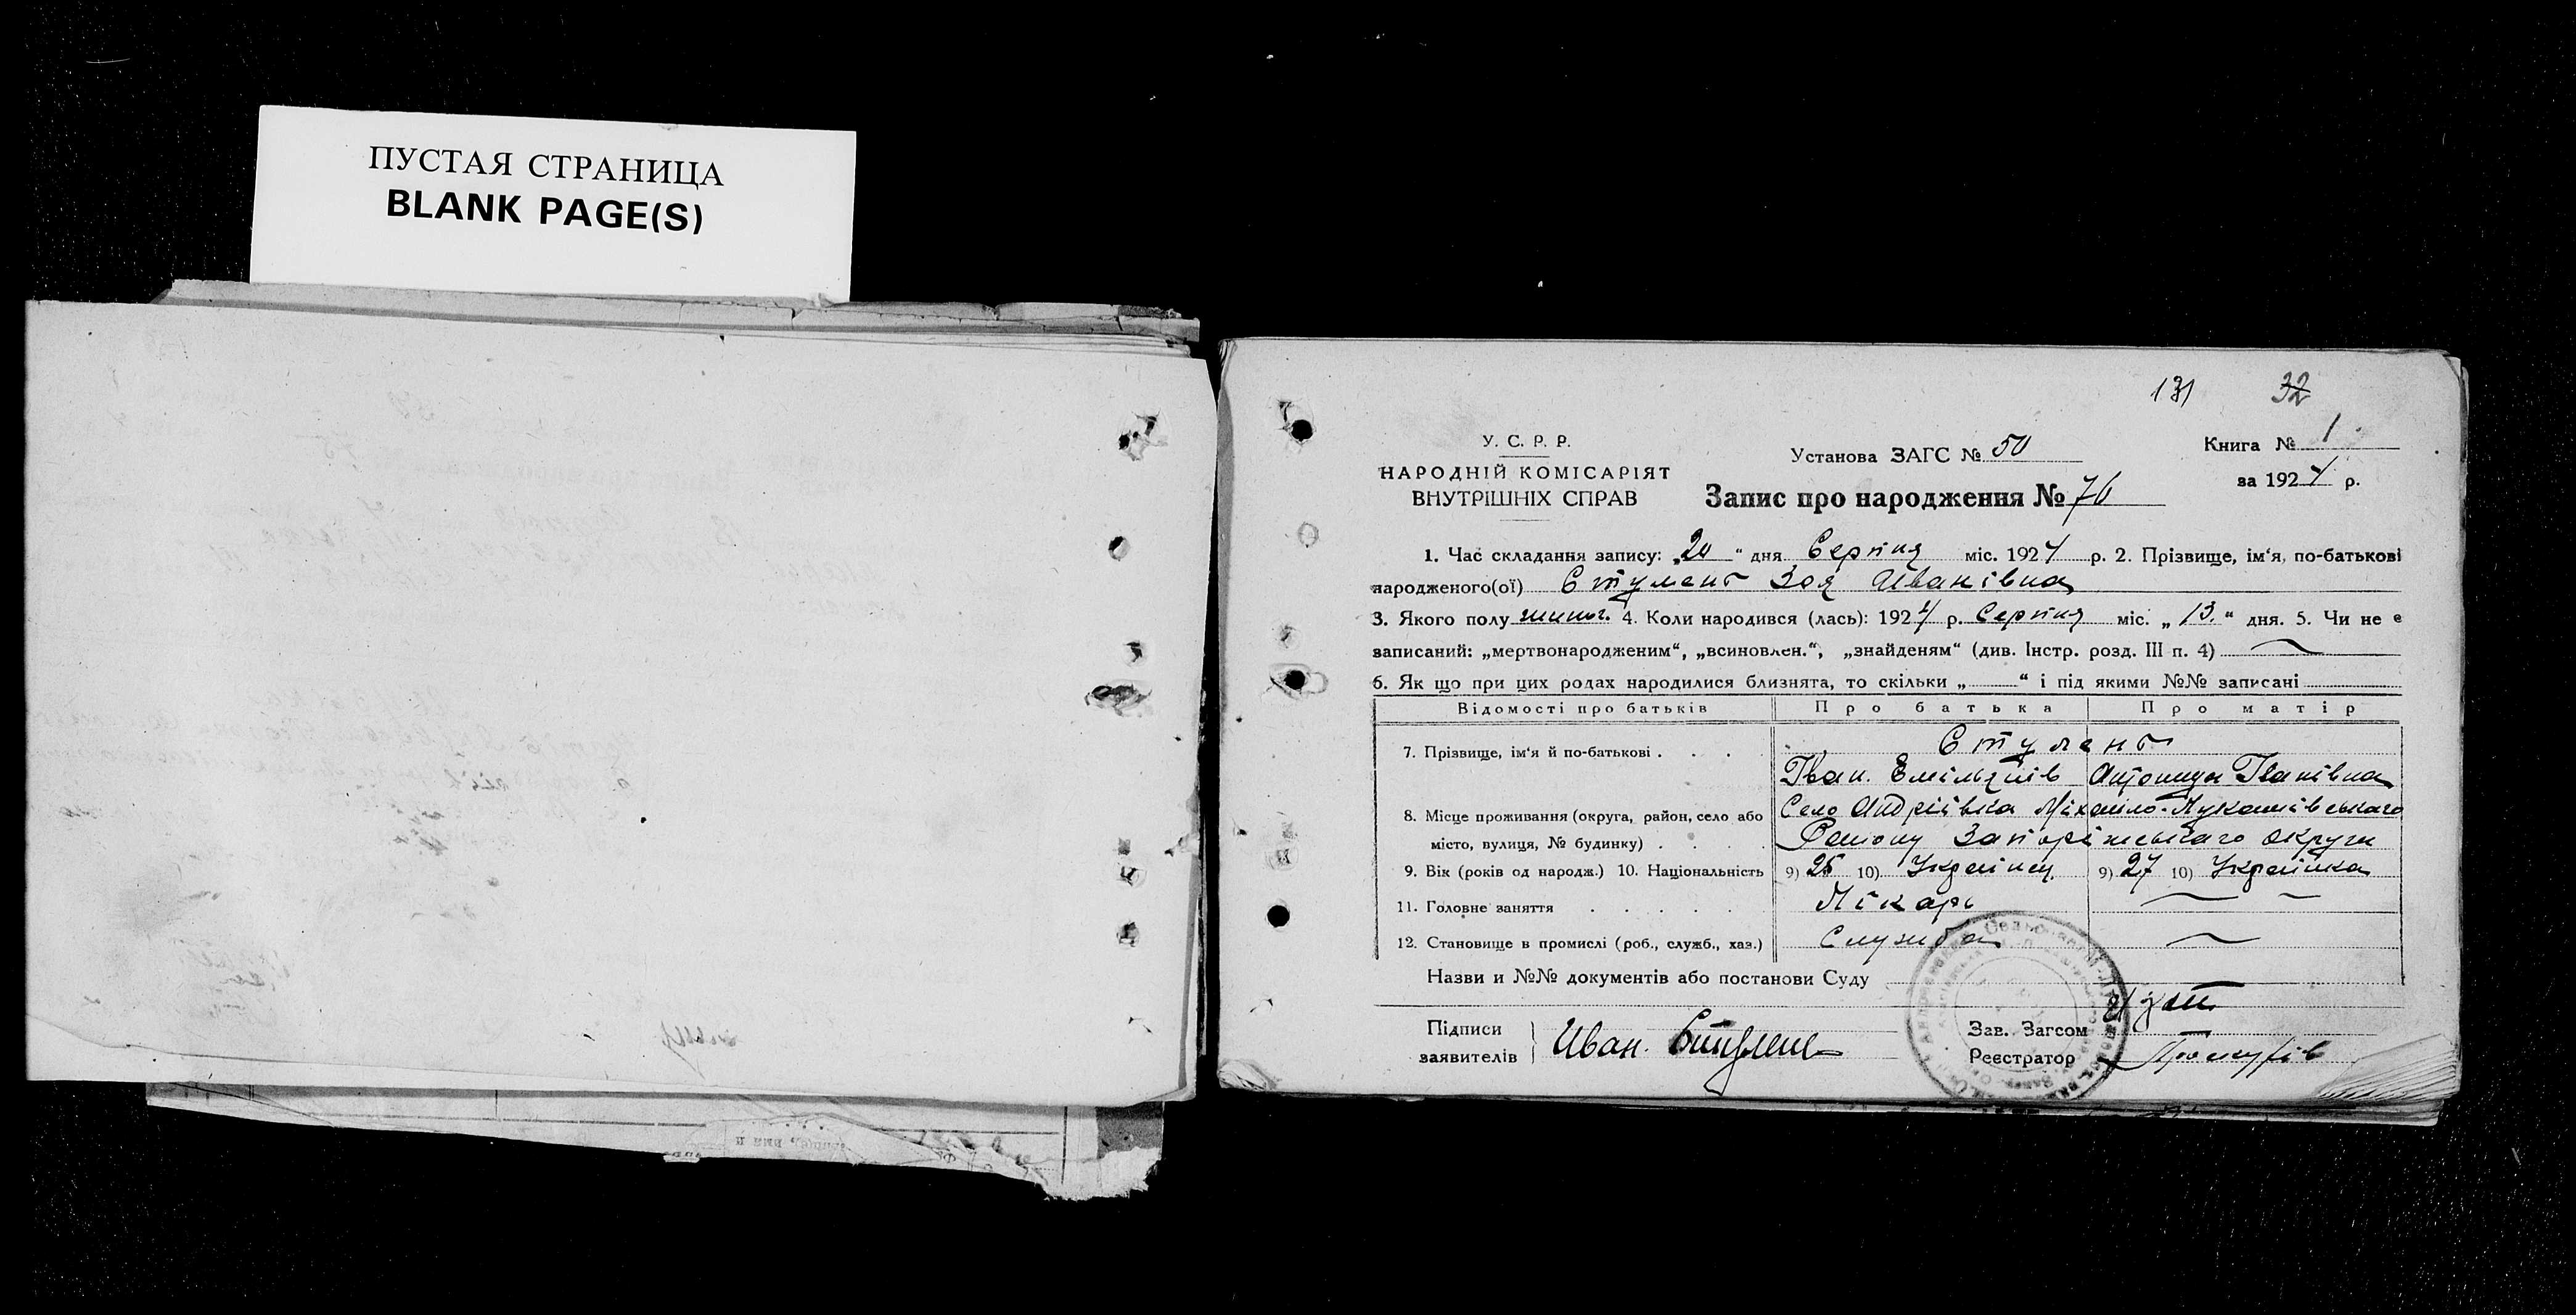 ПУСТАЯ СТРАНИЦА
BLANK PAGE(S)
131 32
У. С. Р. Р.
НАРОДНІЙ КОМІСАРІЯТ
ВНУТРІШНІХ СПРАВ
Установа ЗАГС № 50
Книга № 1
за 1924 р.
Запис про народження № 76
1. Час складання запису: „20“ дня Серпня міс. 1924 р. 2. Прізвище, ім‘я, по-батькові
народженого(ої) Ступент Зоя Иванівна
3. Якого полу жиноч. 4. Коли народився (лась): 1924 р. Серпня міс. „13.“ дня. 5. Чи не є
записаний: „мертвонародженим“, „всиновлен.“, „знайденям“ (див. Інстр. розд. III п. 4)
6. Як що при цих родах народилися близнята, то скільки „ “ і під якими №№ записані
Відомості про батьків Про батька Про матір
7. Прізвище, ім‘я й по-батькові . . . . Ступент
Іван. Іванівна
8. Місце проживання (округа, район, село або Село Андріівка Міхайло-Лукашівського
місто, вулиця, № будинку) . . . . Району Запоріжського округи
9. Вік (років од народж.) 10. Національність 9) 25 10) Украінец 9) 27 10) Украінка
11. Головне заняття . . . . . Лікарь
12. Становище в промислі (роб., служб., хаз.) Служба
Назви и №№ документів або постанови Суду
Підписи
заявителів
Иван.
Зав. Загсом
Реєстратор